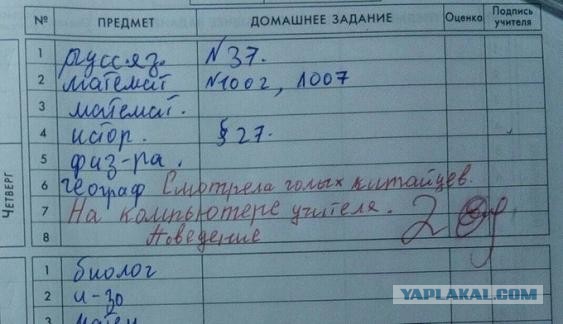 № ПРЕДМЕТ ДОМАШНЕЕ ЗАДАНИЕ Оценка Подпись учителя
1 русс.яз. №37.
2 математ №1002, 1007
3 математ.
4 истор. §27.
5 физ-ра.
6 географ Смотрела голых китайцев.
7 На компьютере учителя. 2
8 Поведение
ЧЕТВЕРГ
1 биолог
2 и-зо
3 матем
YAPLAKAL.COM